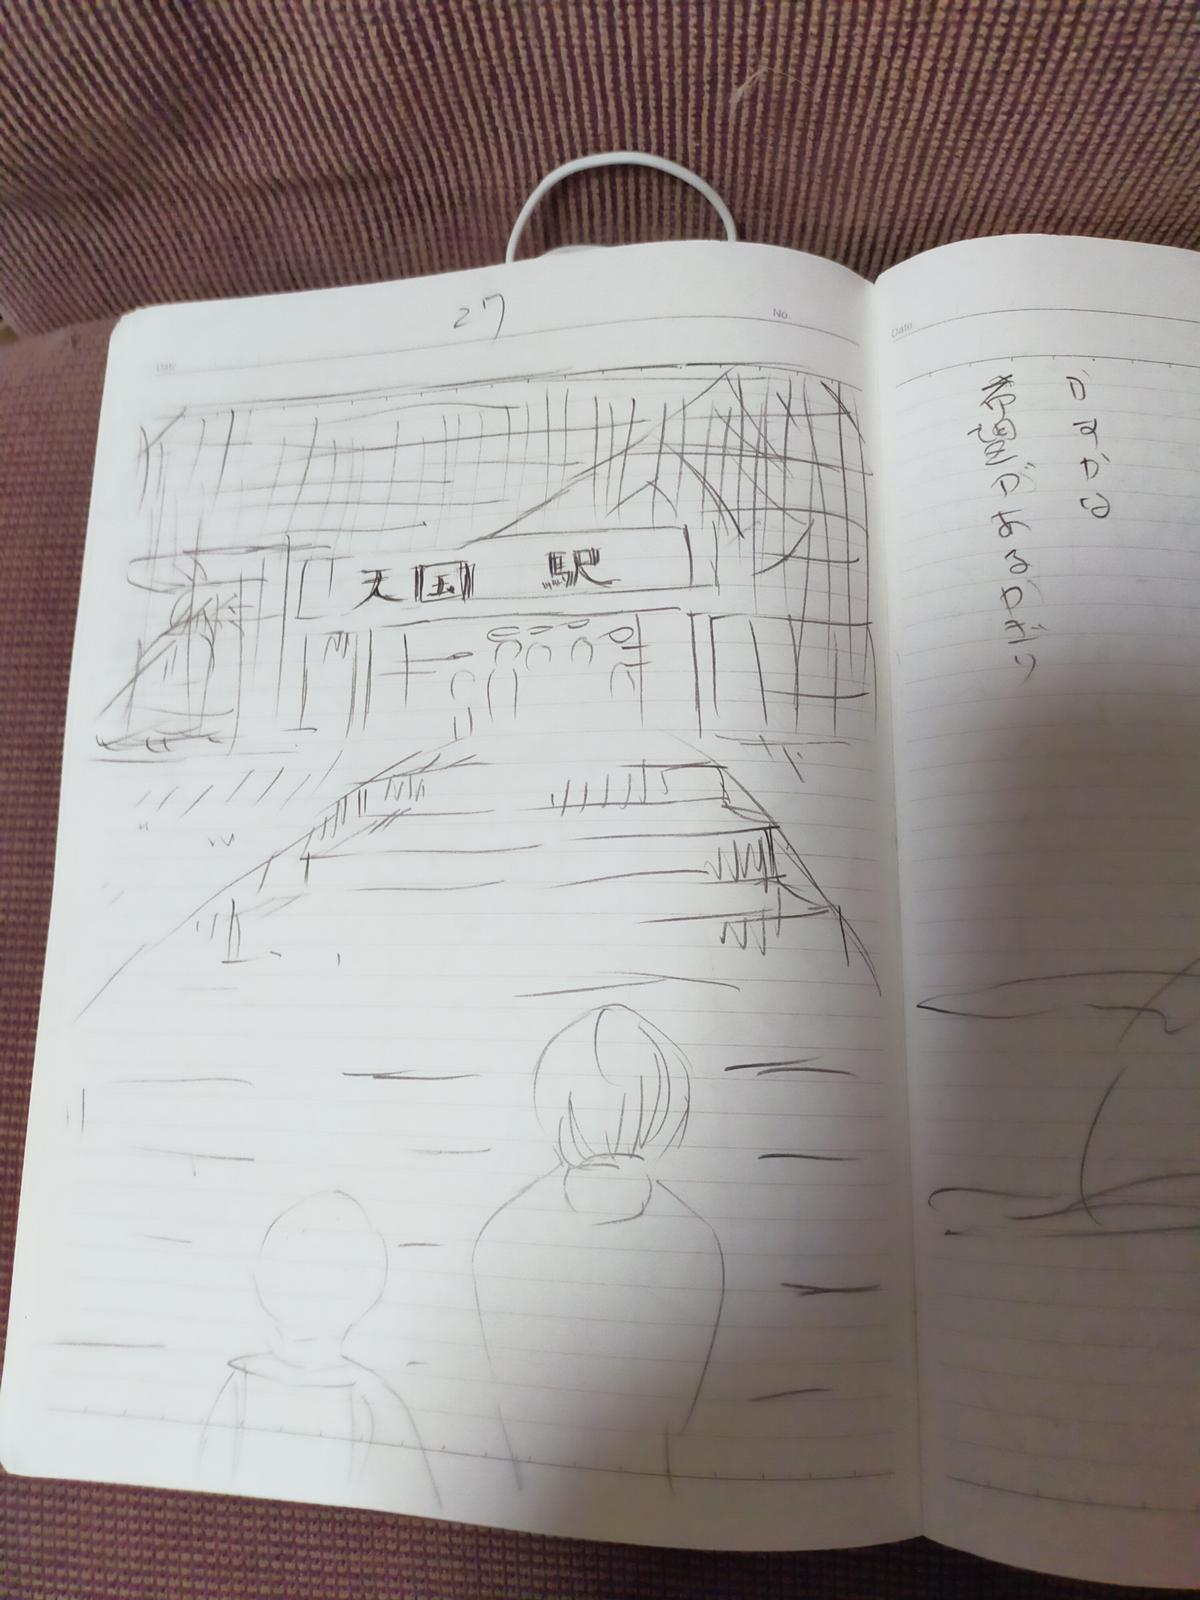 27
Date
No.
天国 駅
Date
かすかな
希望があるかぎり